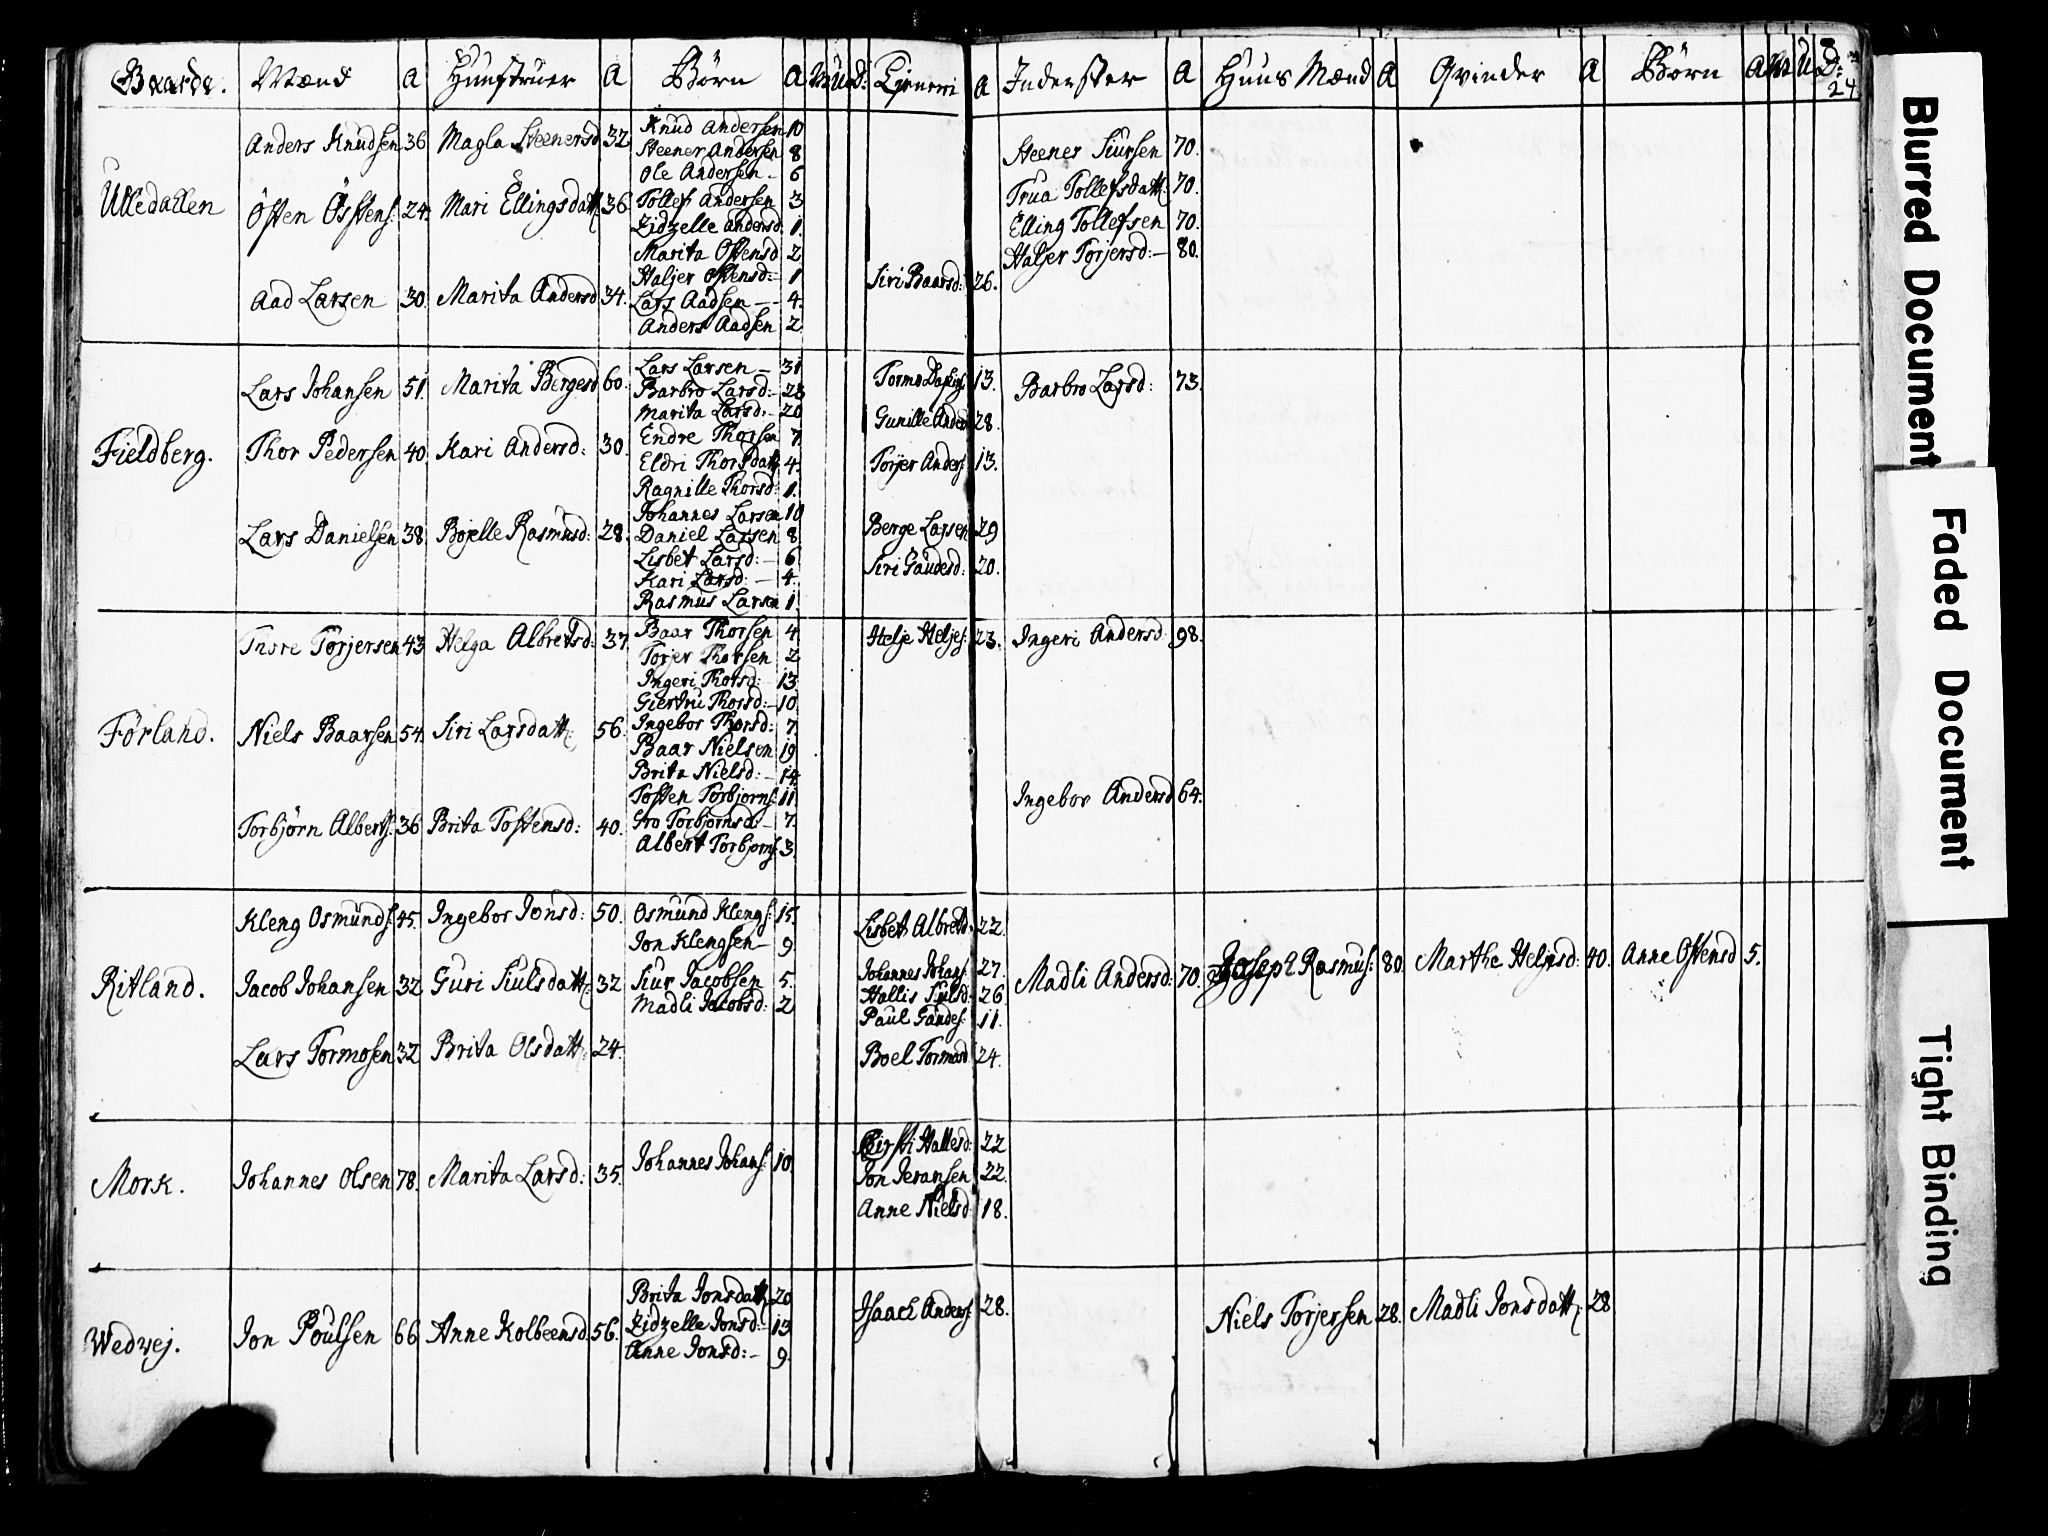 Gaarde. Mænd A Hunstruer A Börn A M U D: Tjeneri A Inderster A Huus Mænd A Qvinder A Börn A M U D:
24
Ulledallen
Anders Knudsen 36 Magla Steenersd 32
Östen Östens: 24. Mari Ellingsdatt: 36
Aad Larsen 30. Marita Andersd 34.
Knud Andersen 10
Steener Andersen 8
Ole Andersen - 6
Tollef Andersen 3
Zidzelle Andersd. 1.
Marita Ostensd 2
Haljer Ostensd:- 1
Lars Aadsen - 4.
Anders Aadsen 2
Siri Baarsd: 26.
Steener Siursen 70.
Trua Tollefsdatt: 70.
Elling Tollefsen 70.
Haljer Torjersd:- 80.
Fieldberg.
Lars Johansen 51. Marita Bergesd 60.
Thor Pedersen 40. Kari Andersd: 30.
Lars Danielsen 38. Bojelle Rasmusd: 28.
Lars Larsen - 31
Barbro Larsd:- 23
Marita Larsd:- 20
Endre Thorsen 7.
Eldri Thorsdatt: 4.
Ragnille Thorsd: 1.
Johannes Larsen 10
Daniel Larsen 8
Lisbet Larsd:- 6
Kari Larsd:- 4.
Rasmus Larsen 1.
13.
Gunille Anders 28.
Torjer Anders: 13.
Berge Larsen 29
Siri Gaudesd: 20.
Barbro Larsd: 73.
Förland.
Thore Torjersen 43 Helga Albretsd: 37.
Niels Baarsen 54. Siri Larsdatt: 56.
Torbjörn Alberts: 36 Brita Tostensd: 40.
Baar Thorsen 4.
Torjer Thorsen 2
Ingeri Thorsd: 13
Giertru Thorsd:- 10
Ingebor Thorsd: 7.
Baar Nielsen 19
Brita Nielsd:- 14.
Tosten Torbjorns: 11
Gro Torbjornsd:- 7.
Albert Torbjorns: 3.
Helje Heljes: 23.
Ingeri Andersd: 98.
Ingebor Andersd 64.
Ritland.
Kleng Osmunds: 45. Ingebor Jonsd: 50.
Jacob Johansen 32 Guri Siulsdatt: 32
Lars Tormosen 32 Brita Olsdatt: 24.
Osmund Klengs: 15.
Jon Klengsen - 9
Siur Jacobsen 5.
Madli Jacobsd: 2
Lisbet Albretd: 22.
Johannes Johans: 27.
Hallis Siulsd: 26
Paul Gaudes: 11.
Boel Tormosd 24.
Madli Andersd: 70. Joseph Rasmus: 80. Marthe Heljesd: 40. Anne Ostensd 5.
Mork.
Johannes Olsen 78. Marita Larsd: 35. Johannes Johans: 10
Kirsti Hallesd: 22
Jon Iversen 22.
Anne Nielsd: 18.
Wedvej.
Jon Poulsen 66 Anne Kolbeensd: 56.
Brita Jonsdatt: 20
Zidzelle Jonsd:- 13
Anne Jonsd:- 9.
Isaach Anders: 28.
Niels Torjersen 28. Madli Jonsdatt: 28
Blurred Document
Faded Document
Tight Binding